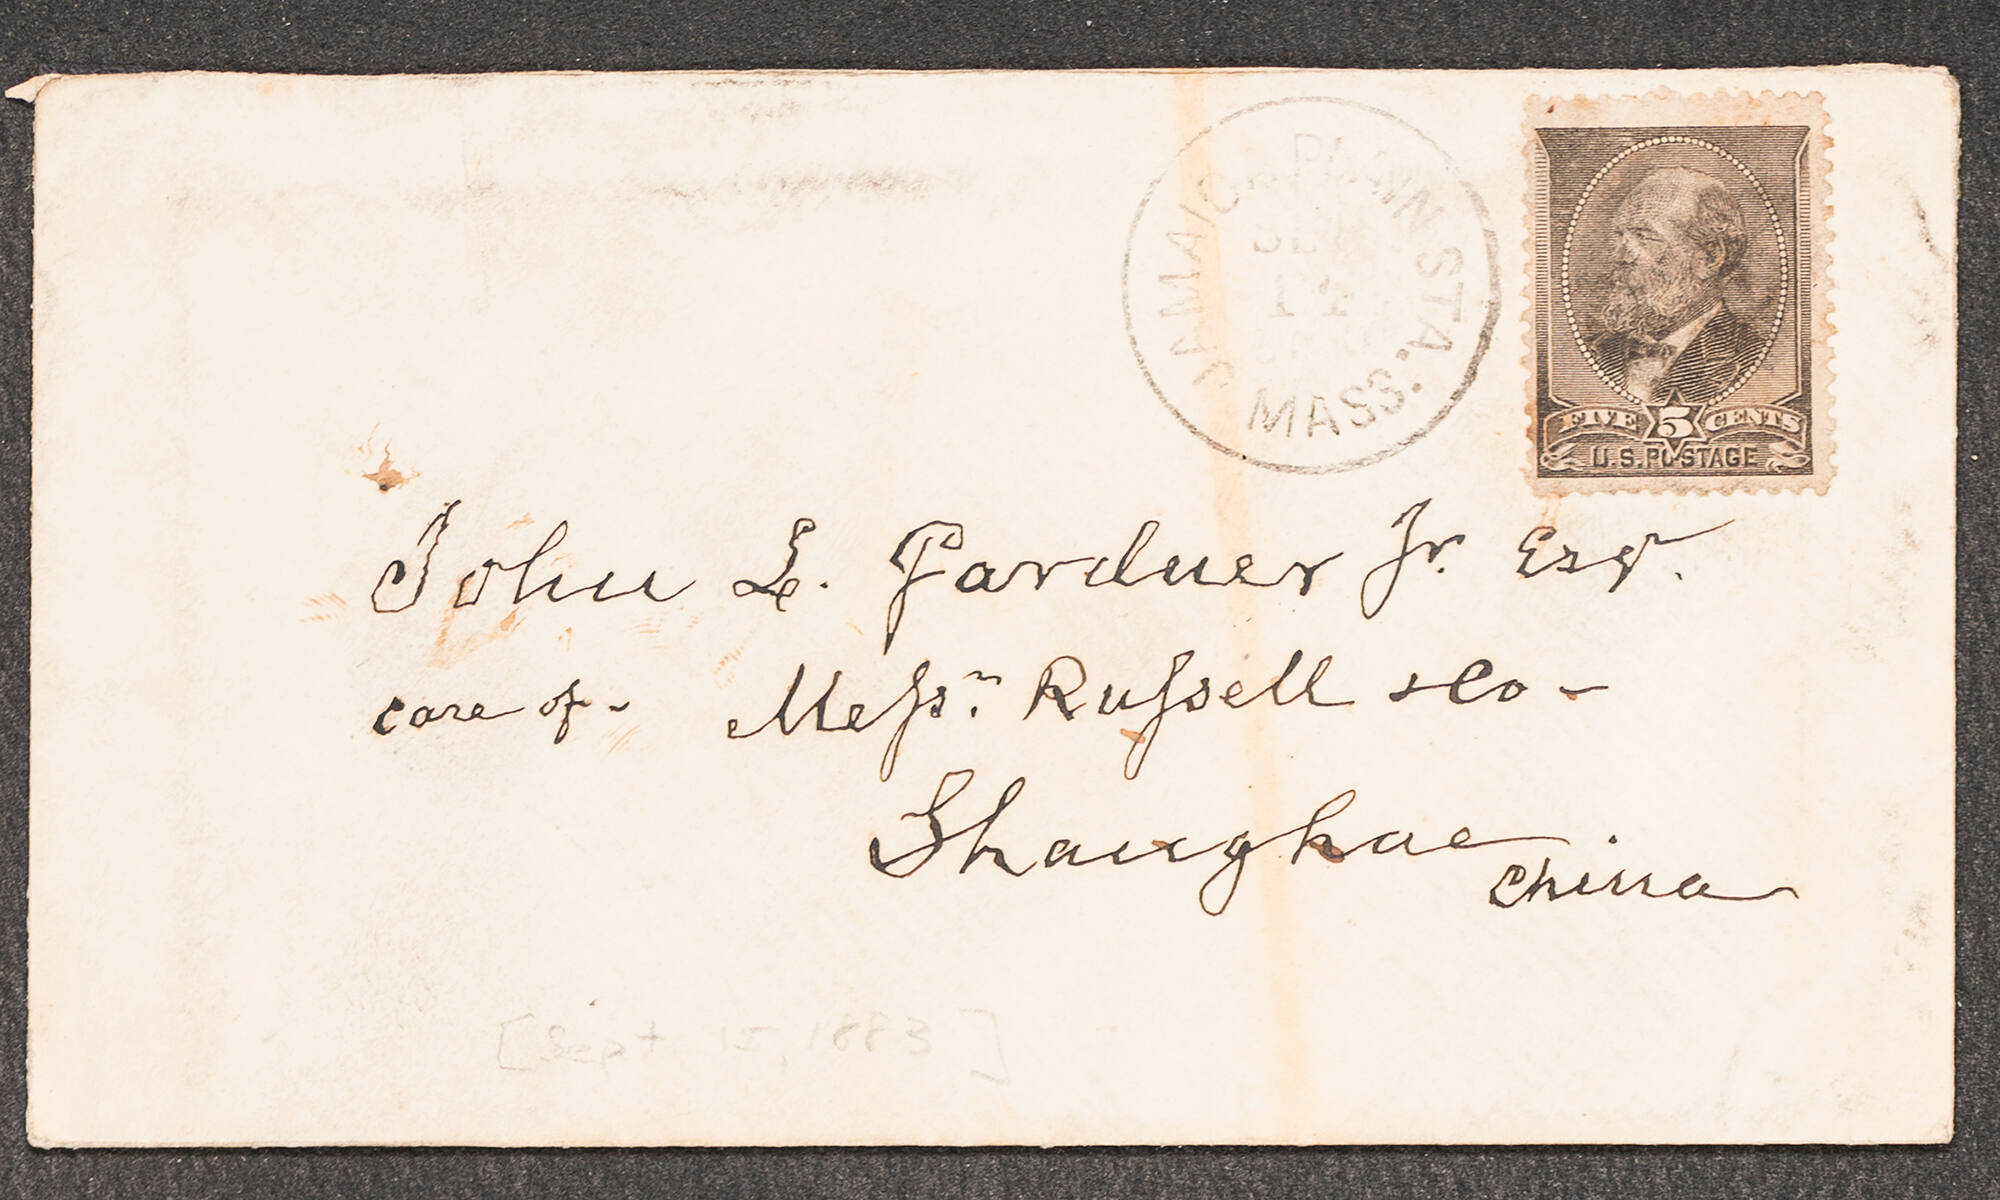 JAMAICA PLAIN STA.
MASS.
FIVE 5 CENTS
U.S. POSTAGE
John L. Gardner Jr. Esqr.
care of - Messrs. Russell & Co -
Shanghae
China
[Sept 15, 1883]